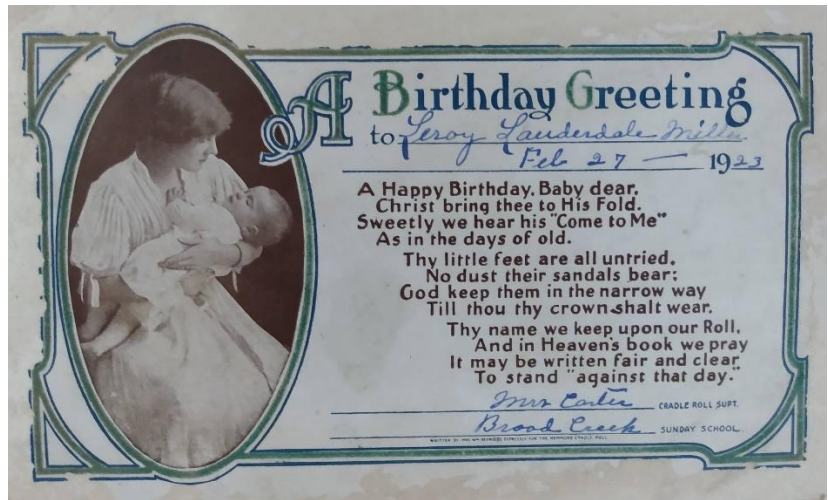 A Birthday Greeting
to Leroy Lauderdale Miller
Feb 27 — 1923
A Happy Birthday, Baby dear,
Christ bring thee to His Fold.
Sweetly we hear his "Come to Me"
As in the days of old.
Thy little feet are all untried,
No dust their sandals bear;
God keep them in the narrow way
Till thou thy crown shalt wear.
Thy name we keep upon our Roll,
And in Heaven's book we pray
It may be written fair and clear
To stand "against that day."
Mrs Carter CRADLE ROLL SUPT.
Broad Creek SUNDAY SCHOOL